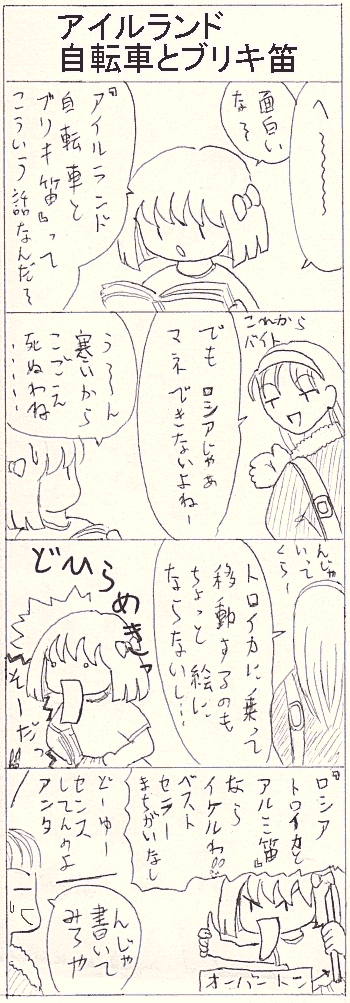 アイルランド
自転車とブリキ笛
へ〜〜〜〜
面白い
なそ
『アイルランド
自転車と
ブリキ笛』って
こういう話なんだそ
これから
バイト
でも ロシアじゃあ
マネできないよねー
う〜ん
寒いから
こごえ
死ぬわね
……
んじゃ
いって
くらー
トロイカに乗って
移動するのも
ちょっと絵に
ならないし…
どひらめきっ
そーだっ!!
『ロシア
トロイカと
アルミ笛』
なら
イケルわ!!
ベスト
セラー
まちがいなし
どーゆー
センス
してんのよ
アンタ
んじゃ
書いて
みろや
オーバートン